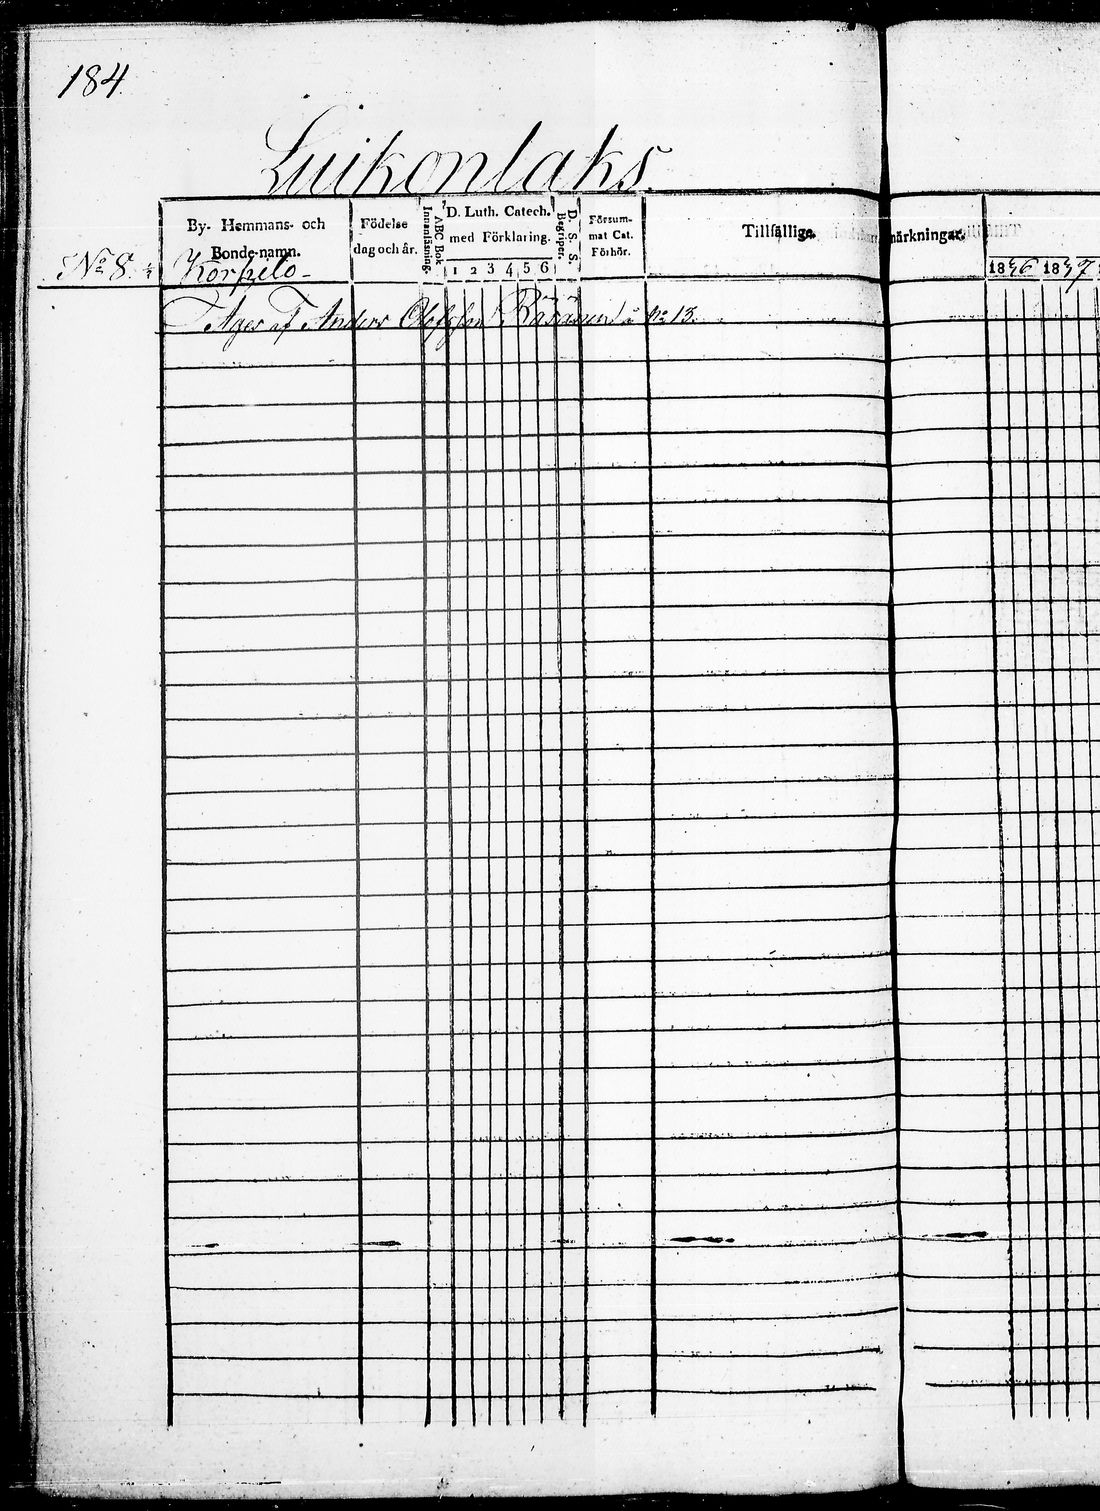 184.
Luikonlaks.
By- Hemmans- och
Bonde-namn.
Födelse
dag och år.
Innanläsning.
ABC Bok.
D. Luth. Catech.
med Förklaring.
1 2 3 4 5 6
D. S. S.
Begriper.
Försum-
mat Cat.
Förhör.
Tillfällige
märkningar.
1836 1837
No 8.
Korpelo-
Äges af Anders Olofsson Räsänen å No 13.